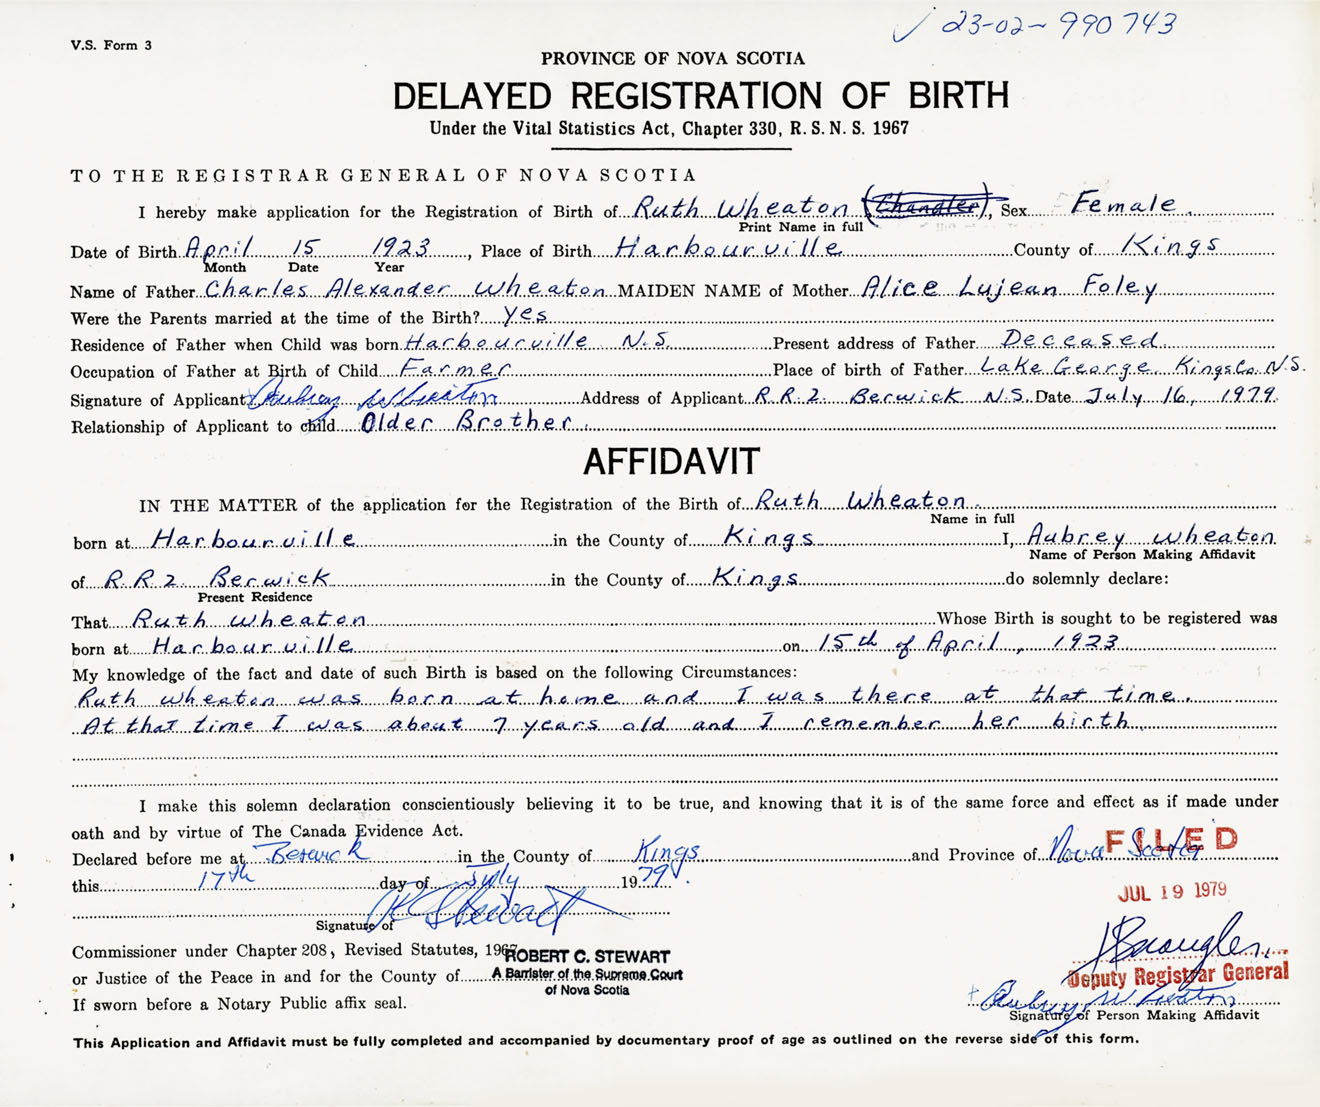 23-02-990743
V.S. Form 3
PROVINCE OF NOVA SCOTIA
DELAYED REGISTRATION OF BIRTH
Under the Vital Statistics Act, Chapter 330, R. S. N. S. 1967
TO THE REGISTRAR GENERAL OF NOVA SCOTIA
I hereby make application for the Registration of Birth of Ruth Wheaton (Chandler), Sex Female
Print Name in full
Date of Birth April 15 1923, Place of Birth Harbourville County of Kings
Month Date Year
Name of Father Charles Alexander Wheaton MAIDEN NAME of Mother Alice Lujean Foley
Were the Parents married at the time of the Birth? Yes
Residence of Father when Child was born Harbourville N.S. Present address of Father Deceased
Occupation of Father at Birth of Child Farmer Place of birth of Father Lake George, Kings Co. N.S.
Signature of Applicant Aubrey Wheaton Address of Applicant R.R.2 Berwick N.S. Date July 16, 1979
Relationship of Applicant to child Older Brother
AFFIDAVIT
IN THE MATTER of the application for the Registration of the Birth of Ruth Wheaton
Name in full
born at Harbourville in the County of Kings I, Aubrey Wheaton
Name of Person Making Affidavit
of R.R 2. Berwick in the County of Kings do solemnly declare:
Present Residence
That Ruth Wheaton Whose Birth is sought to be registered was
born at Harbourville on 15th of April, 1923
My knowledge of the fact and date of such Birth is based on the following Circumstances:
Ruth Wheaton was born at home and I was there at that time.
At that time I was about 7 years old and I remember her birth
I make this solemn declaration conscientiously believing it to be true, and knowing that it is of the same force and effect as if made under
oath and by virtue of The Canada Evidence Act.
Declared before me at Berwick in the County of Kings and Province of Nova Scotia
FILED
this 17th day of July 1979.
JUL 19 1979
Signature of R C Stewart
Commissioner under Chapter 208, Revised Statutes, 1967
ROBERT C. STEWART
or Justice of the Peace in and for the County of
A Barrister of the Supreme Court
of Nova Scotia
Deputy Registrar General
If sworn before a Notary Public affix seal.
Aubrey Wheaton
Signature of Person Making Affidavit
This Application and Affidavit must be fully completed and accompanied by documentary proof of age as outlined on the reverse side of this form.